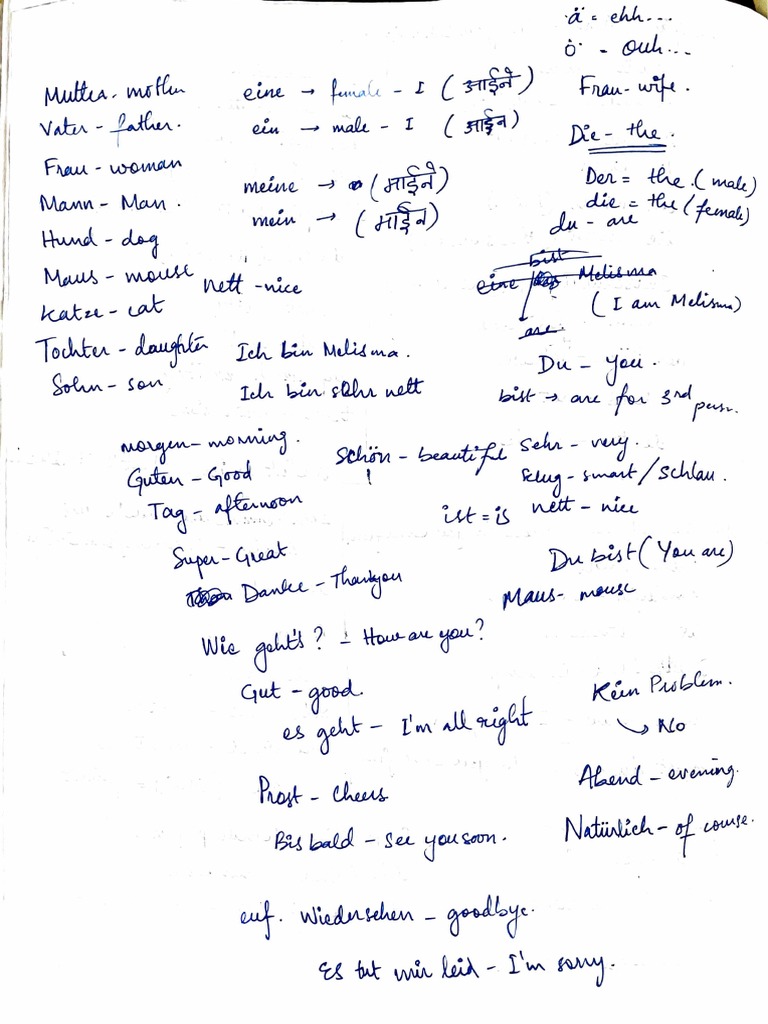 ä = ehh...
ö - Ouh...
Mutter - mother
eine → female - I (आईने)
Frau - wife.
Vater - father.
ein → male - I (आईन)
Die - the.
Frau - woman
meine → (माईने)
Der = the (male)
Mann - Man.
mein → (माईन)
die = the (female)
Hund - dog
du - are
Maus - mouse
nett - nice
bist
eine Melisma
Katze - cat
(I am Melisma)
are
Tochter - daughter
Ich bin Melisma.
Du - you.
Sohn - son
Ich bin sehr nett
bist → are for 3rd pers.
morgen - morning.
schön - beautiful
sehr - very.
Guten - Good
klug - smart / schlau.
Tag - afternoon
ist = is
nett - nice
Super - Great
Du bist (You are)
Danke - Thankyou
Maus - mouse
Wie geht's? - How are you?
Gut - good.
Kein Problem.
es geht - I'm all right
↳ No
Prost - Cheers
Abend - evening.
Bis bald - see you soon.
Natürlich - of course.
auf. Wiedersehen - goodbye.
Es tut mir leid - I'm sorry.